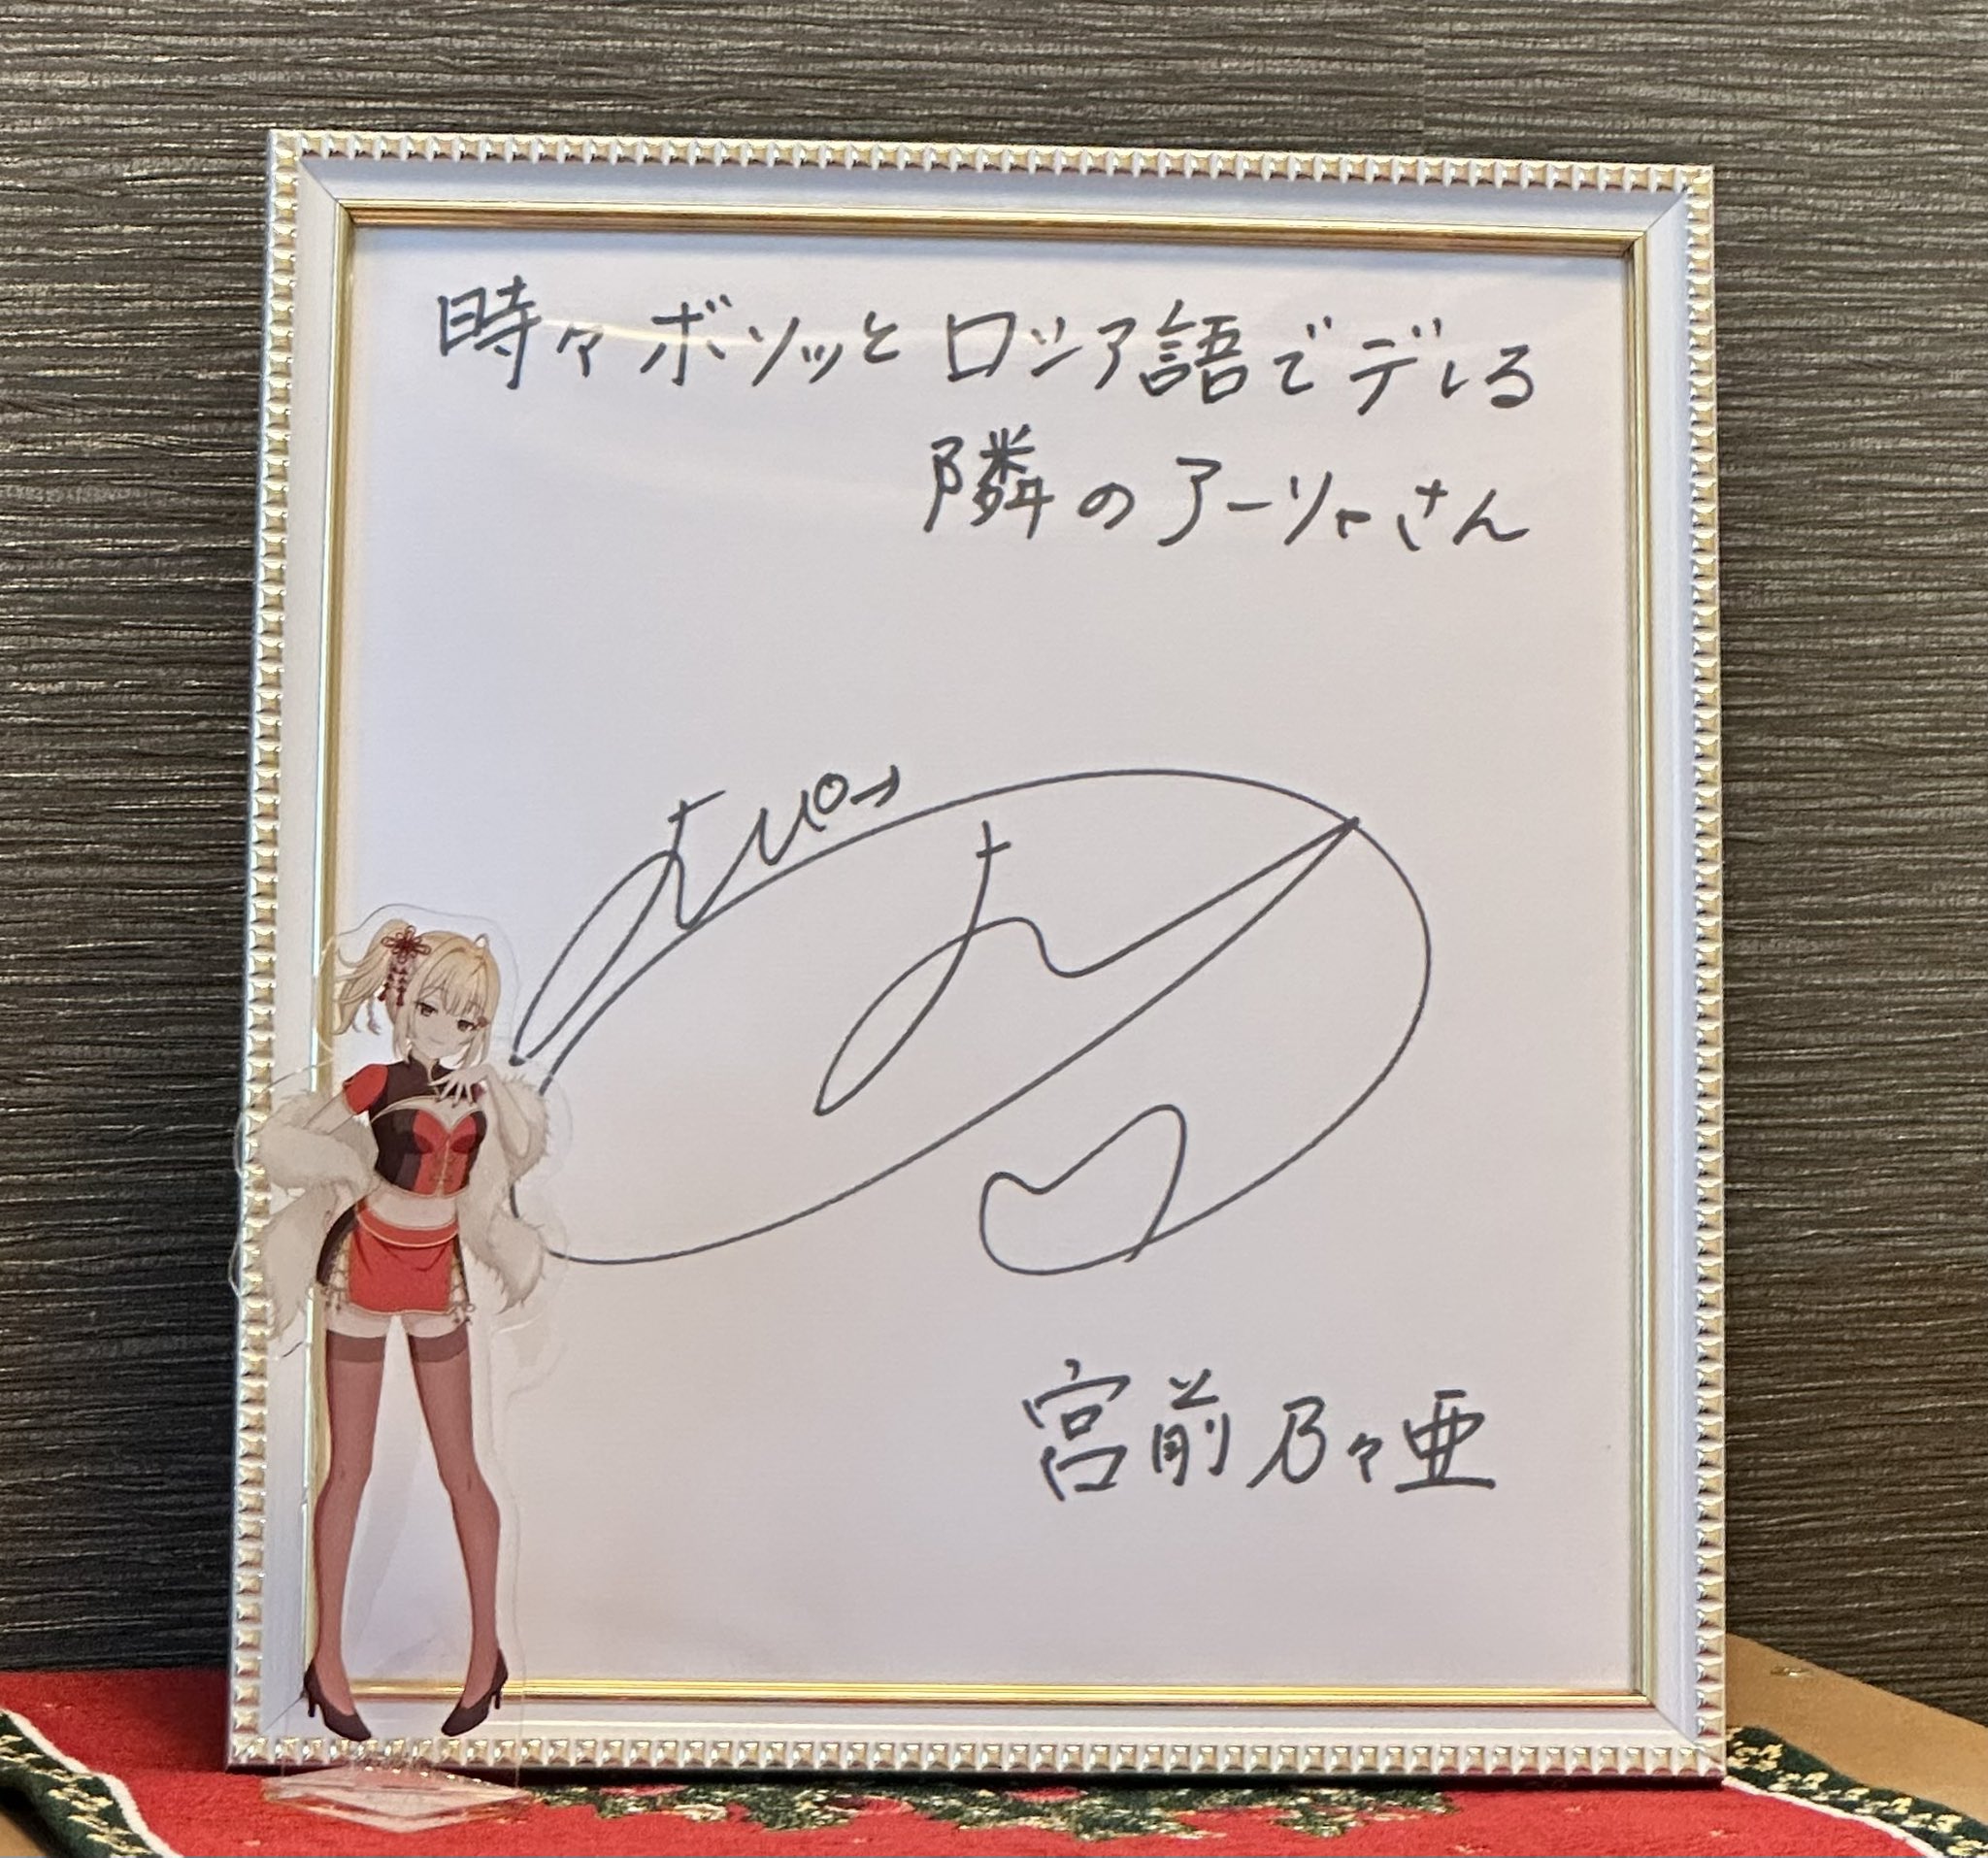 時々ボソッとロシア語でデレる
隣のアーリャさん
宮前乃々亜